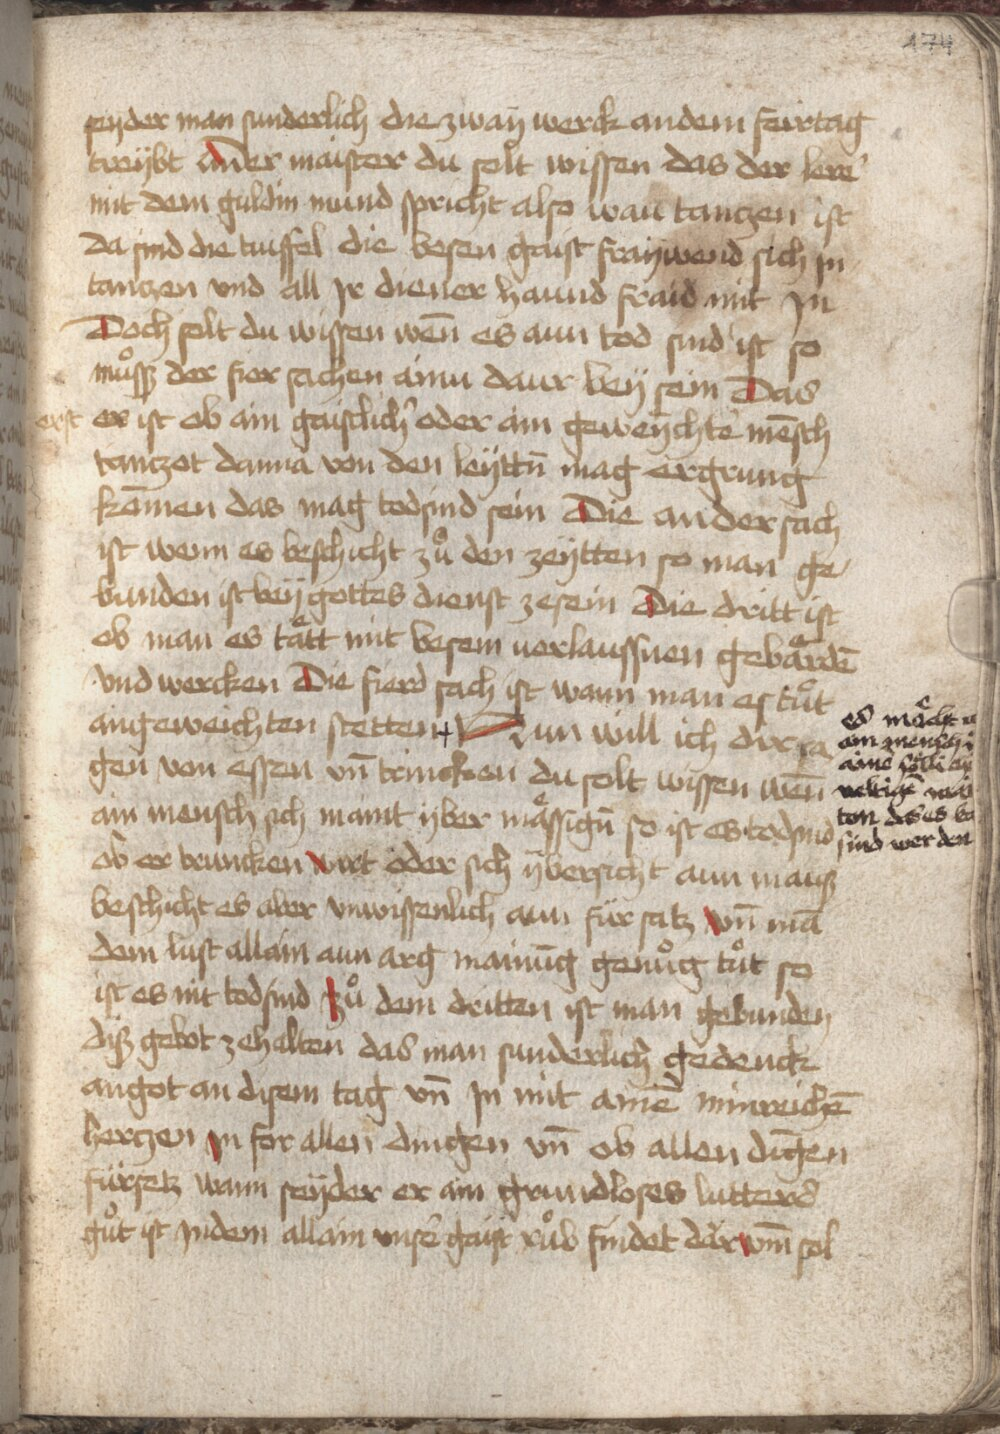 174
seyder man sunderlich die zway werck an dem feirtag
treybt Aber maister du solt wissen das der lerer
mit dem guldin mund spricht also wau tanczen ist
da sind die tuiffel die besen gaist fraywend sich in
tanczen vnd all Ir diener haund fraid mit In
Doch solt du wissen wen̄ es aun tod sind ist so
mu᷎ß der fier sachen ainu daur bey sein Das
erst er ist ob ain gaistlich' oder ain geweychte' mēsch
tanczot danna von den leyttn̄ mag ergrung
kōmen das mag todsind sein Die ander sach
ist wenn es beschicht zů den zeytten so man ge
bunden ist bey gottes dienst zesein Die dritt ist
ob man es tått mit besem uerlaussnen gebårdē
vnd wercken Die fierd sach ist wann man es tůt
an geweichten stetten + Nun will ich dir sa
gen von essen vn̄ trincken du solt wissen wēn
ain mensch sich niamt yber må̊ssigū so ist es todsind
ob er truncken wirt oder sich ÿbersicht aun mauß
beschicht es aber vnwissenlich aun für satz vn̄ mā
dem lust allain aun arg mainūg genůg tůt so
ist es nit todsind Zů dem dritten ist man gebunden
diß gebot zehalten das man sunderlich gedenck
an got an disem tag vn̄ In mit ainē minreichē
herczen In for allen dingen vn̄ ob allen dīgen
fürsetz wann seyder er ain grundloses lutters
gůt ist In dem allain vnser gaist růb findet dar vm̄ sol
es möcht
ain mensch
aine
ton das es
sind werden